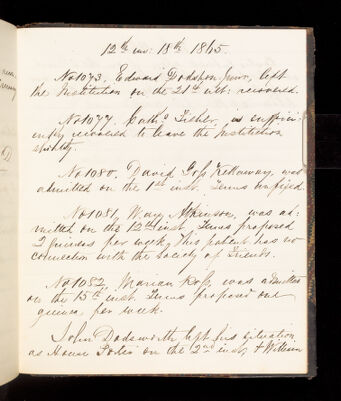 12th mo: 18th 1865.
No 1073. Edward Dodshon Junr., left
the Institution on the 21st ult: recovered.
No 1077. Cathe. Fisher, is suffici-
ently recovered to leave the Institution
shortly.
No 1080. David Goff Kellaway, was
admitted on the 1st inst. Terms unfixed.
No 1081, Mary Atkinson, was ad-
mitted on the 12th inst. Terms proposed
2 guineas per week, This patient has no
connection with the Society of Friends.
No 1082, Marian Ross, was admitted
on the 15th inst. Terms proposed one
guinea per week.
John Dodsworth left his situation
as House Porter on the 2nd inst, & William